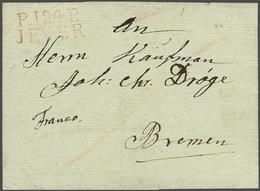 P.124.P.
JEVER
An
Herrn Kaufman
Joh: Chr. Dröge
Franco.
Bremen